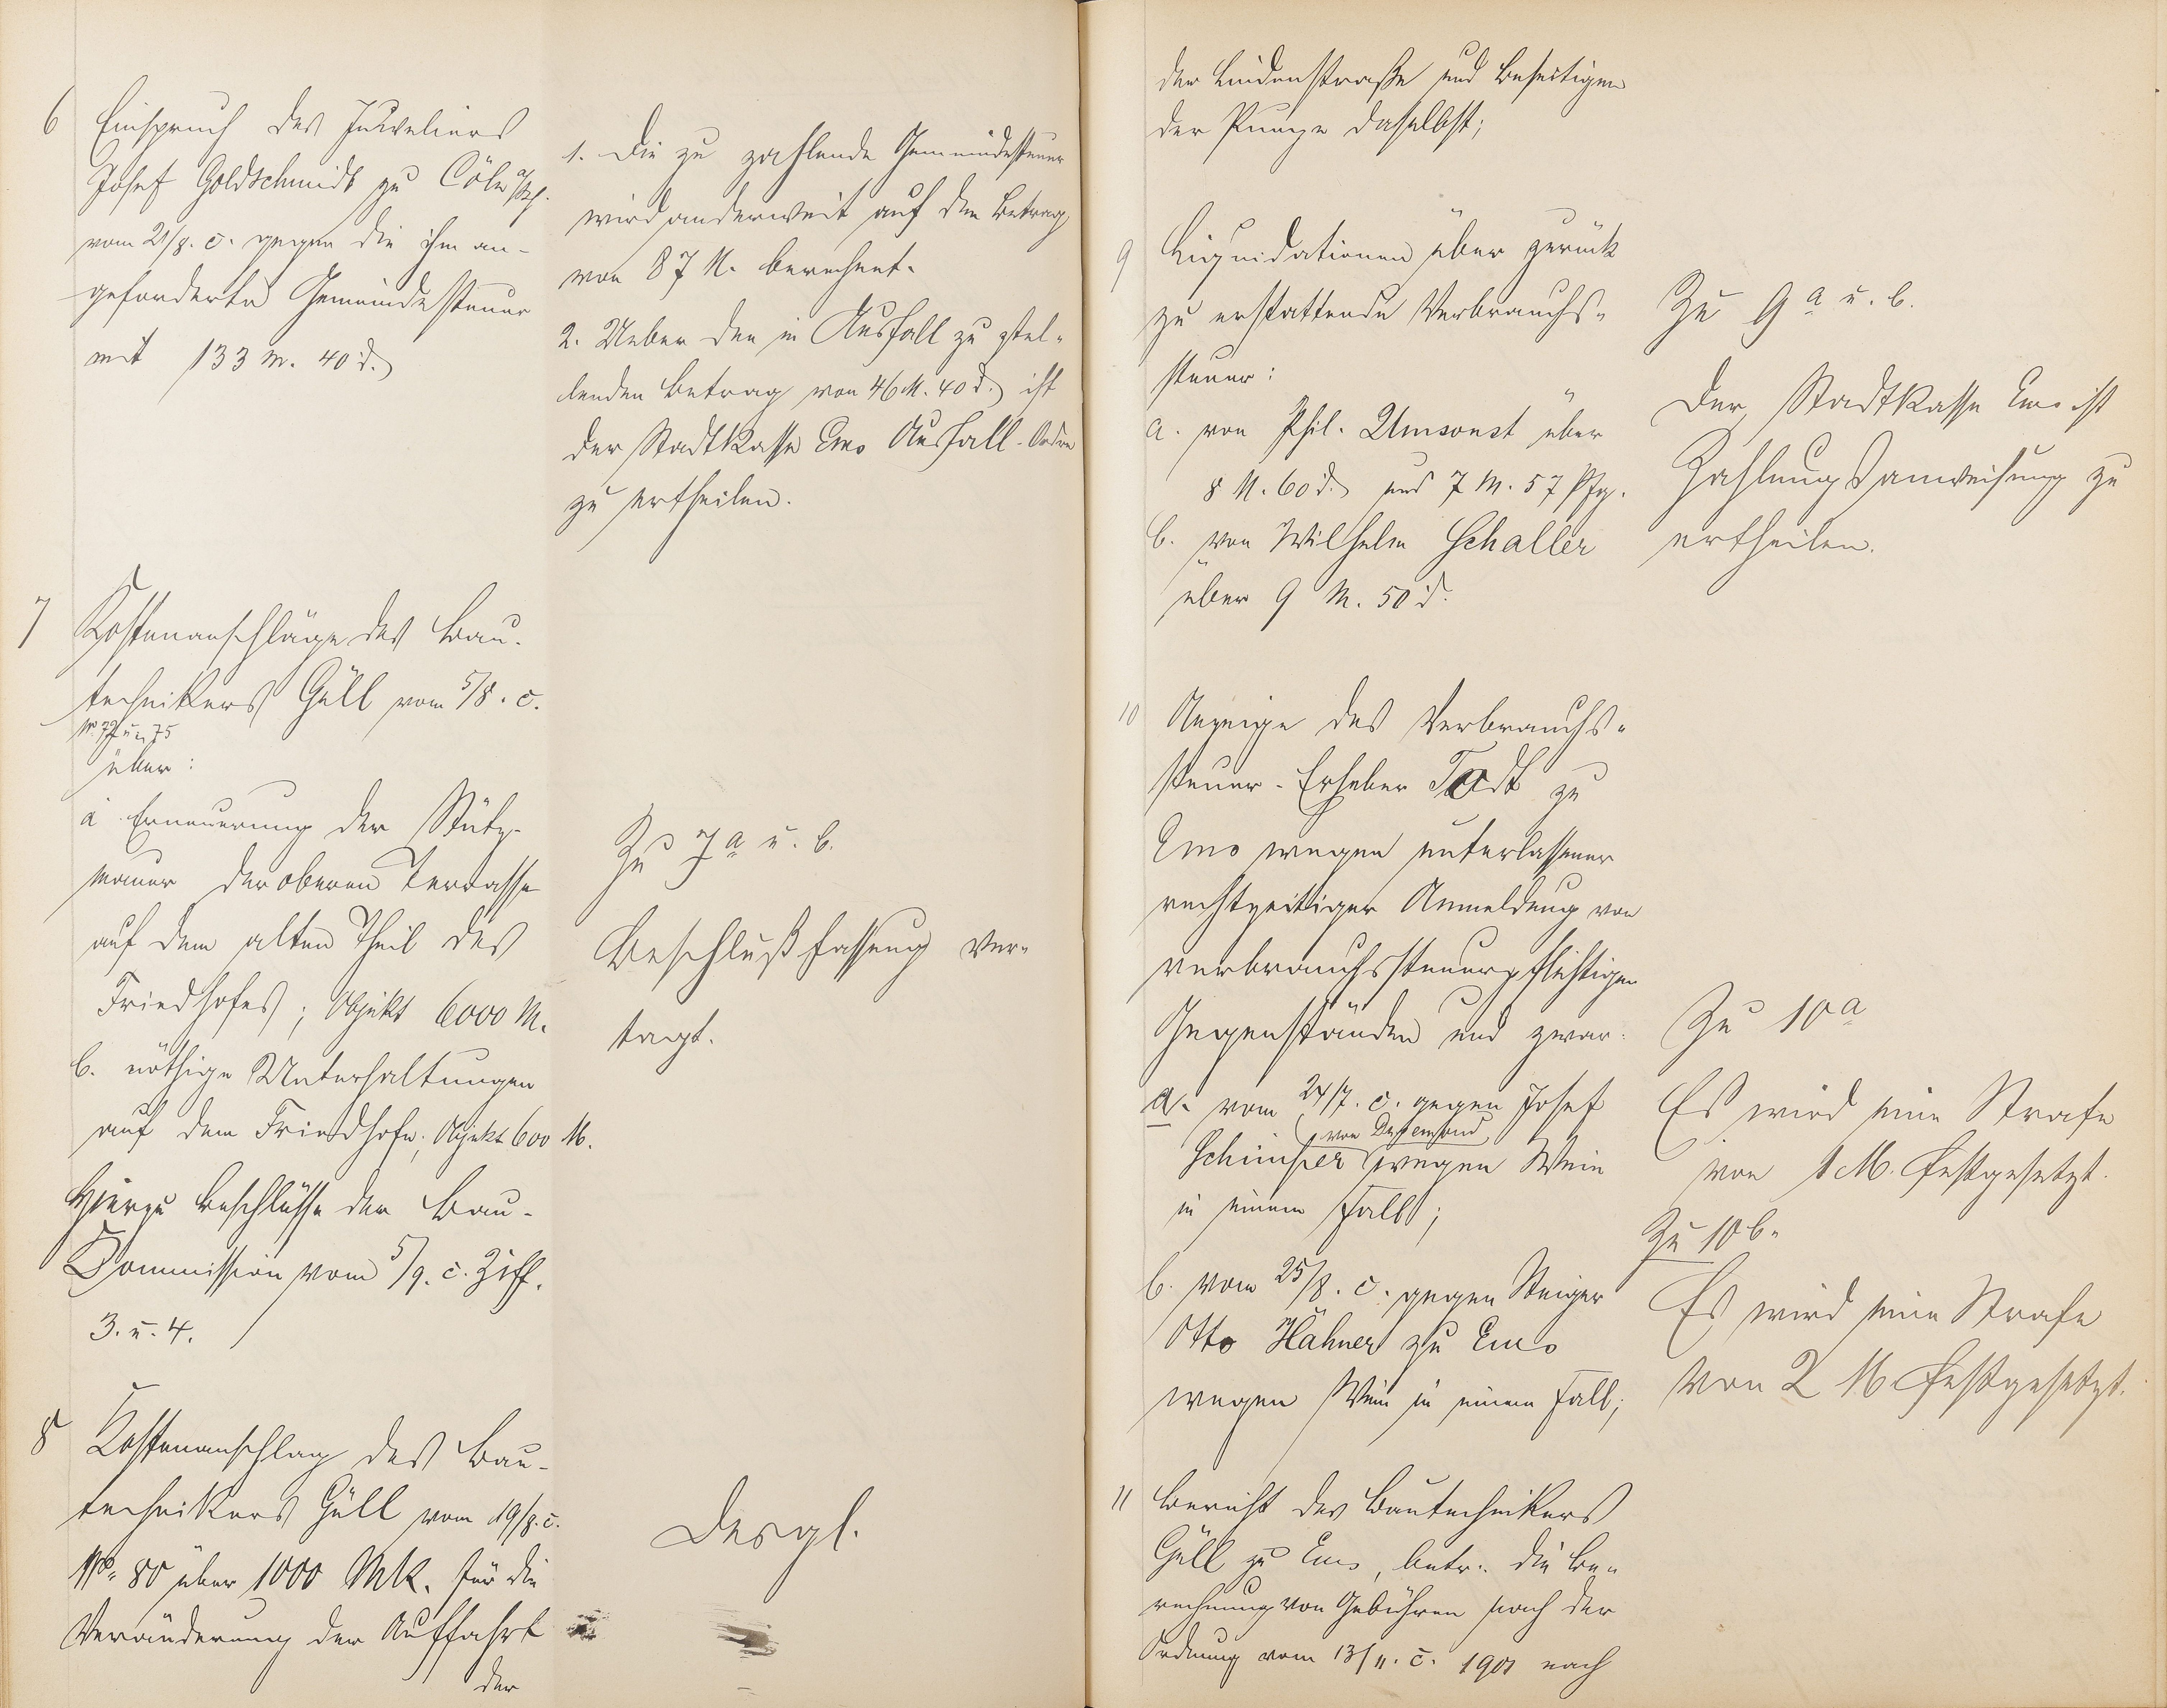 6 Einspruch des Juweliers
Josef Goldschmidt zu Cöln a/Rh.
vom 21/8. c. gegen die ihm an-
geforderte Gemeindesteuer
mit 133 M. 40 d.
1. Die zu zahlende Gemeindesteuer
wird anderweit auf den Betrag
von 87 M. berechnet.
2. Ueber den in Ausfall zu stel-
lenden Betrag von 46 M. 40 d. ist
der Stadtkasse Ems Ausfall-Ordre
zu ertheilen.
7 Kostenanschläge des Bau-
technikers Güll vom 5/8. c.
No. 72 u. 75
über:
a Erneuerung der Stütz-
mauer der oberen Terrasse
auf dem alten Theil des
Friedhofes; Objekt 6000 M.
b. nöthige Unterhaltungen
auf dem Friedhofe; Objekt 600 M.
Hierzu Beschlüsse der Bau-
Commission vom 5/9. c. Ziff.
3. u. 4.
Zu 7 a u. b.
Beschlußfassung ver-
tagt.
8 Kostenanschlag des Bau-
technikers Güll vom 19/8. c.
No. 80 über 1000 Mk. für die
Veränderung der Auffahrt
der
Desgl.
der Lindenstraße und Beseitigen
der Pumpe daselbst;
9 Liquidationen über zurück
zu erstattende Verbrauchs-
steuer:
a. von Phil. Umsonst über
8 M. 60 d. und 7 M. 57 Pfg.
b. von Wilhelm Schaller
über 9 M. 50 d.
Zu 9 a u. b.
Der Stadtkasse Ems ist
Zahlungsanweisung zu
ertheilen.
10 Anzeige des Verbrauchs-
steuer-Erheber Todt zu
Ems wegen unterlassener
rechtzeitiger Anmeldung von
verbrauchssteuerpflichtigen
Gegenständen und zwar:
a. vom 24/7. c. gegen Josef
von
Schimper wegen Wein
in einem Fall;
b. vom 25/8. c. gegen Steiger
Otto Hähner zu Ems
wegen Wein in einem Fall;
Zu 10 a
Es wird eine Strafe
von 1 M. festgesetzt.
Zu 10 b.
Es wird eine Strafe
von 2 M festgesetzt.
11 Bericht des Bautechnikers
Güll zu Ems, betr. die Be-
rechnung von Gebühren nach der
Ordnung vom 13/11. c. 1901 nach